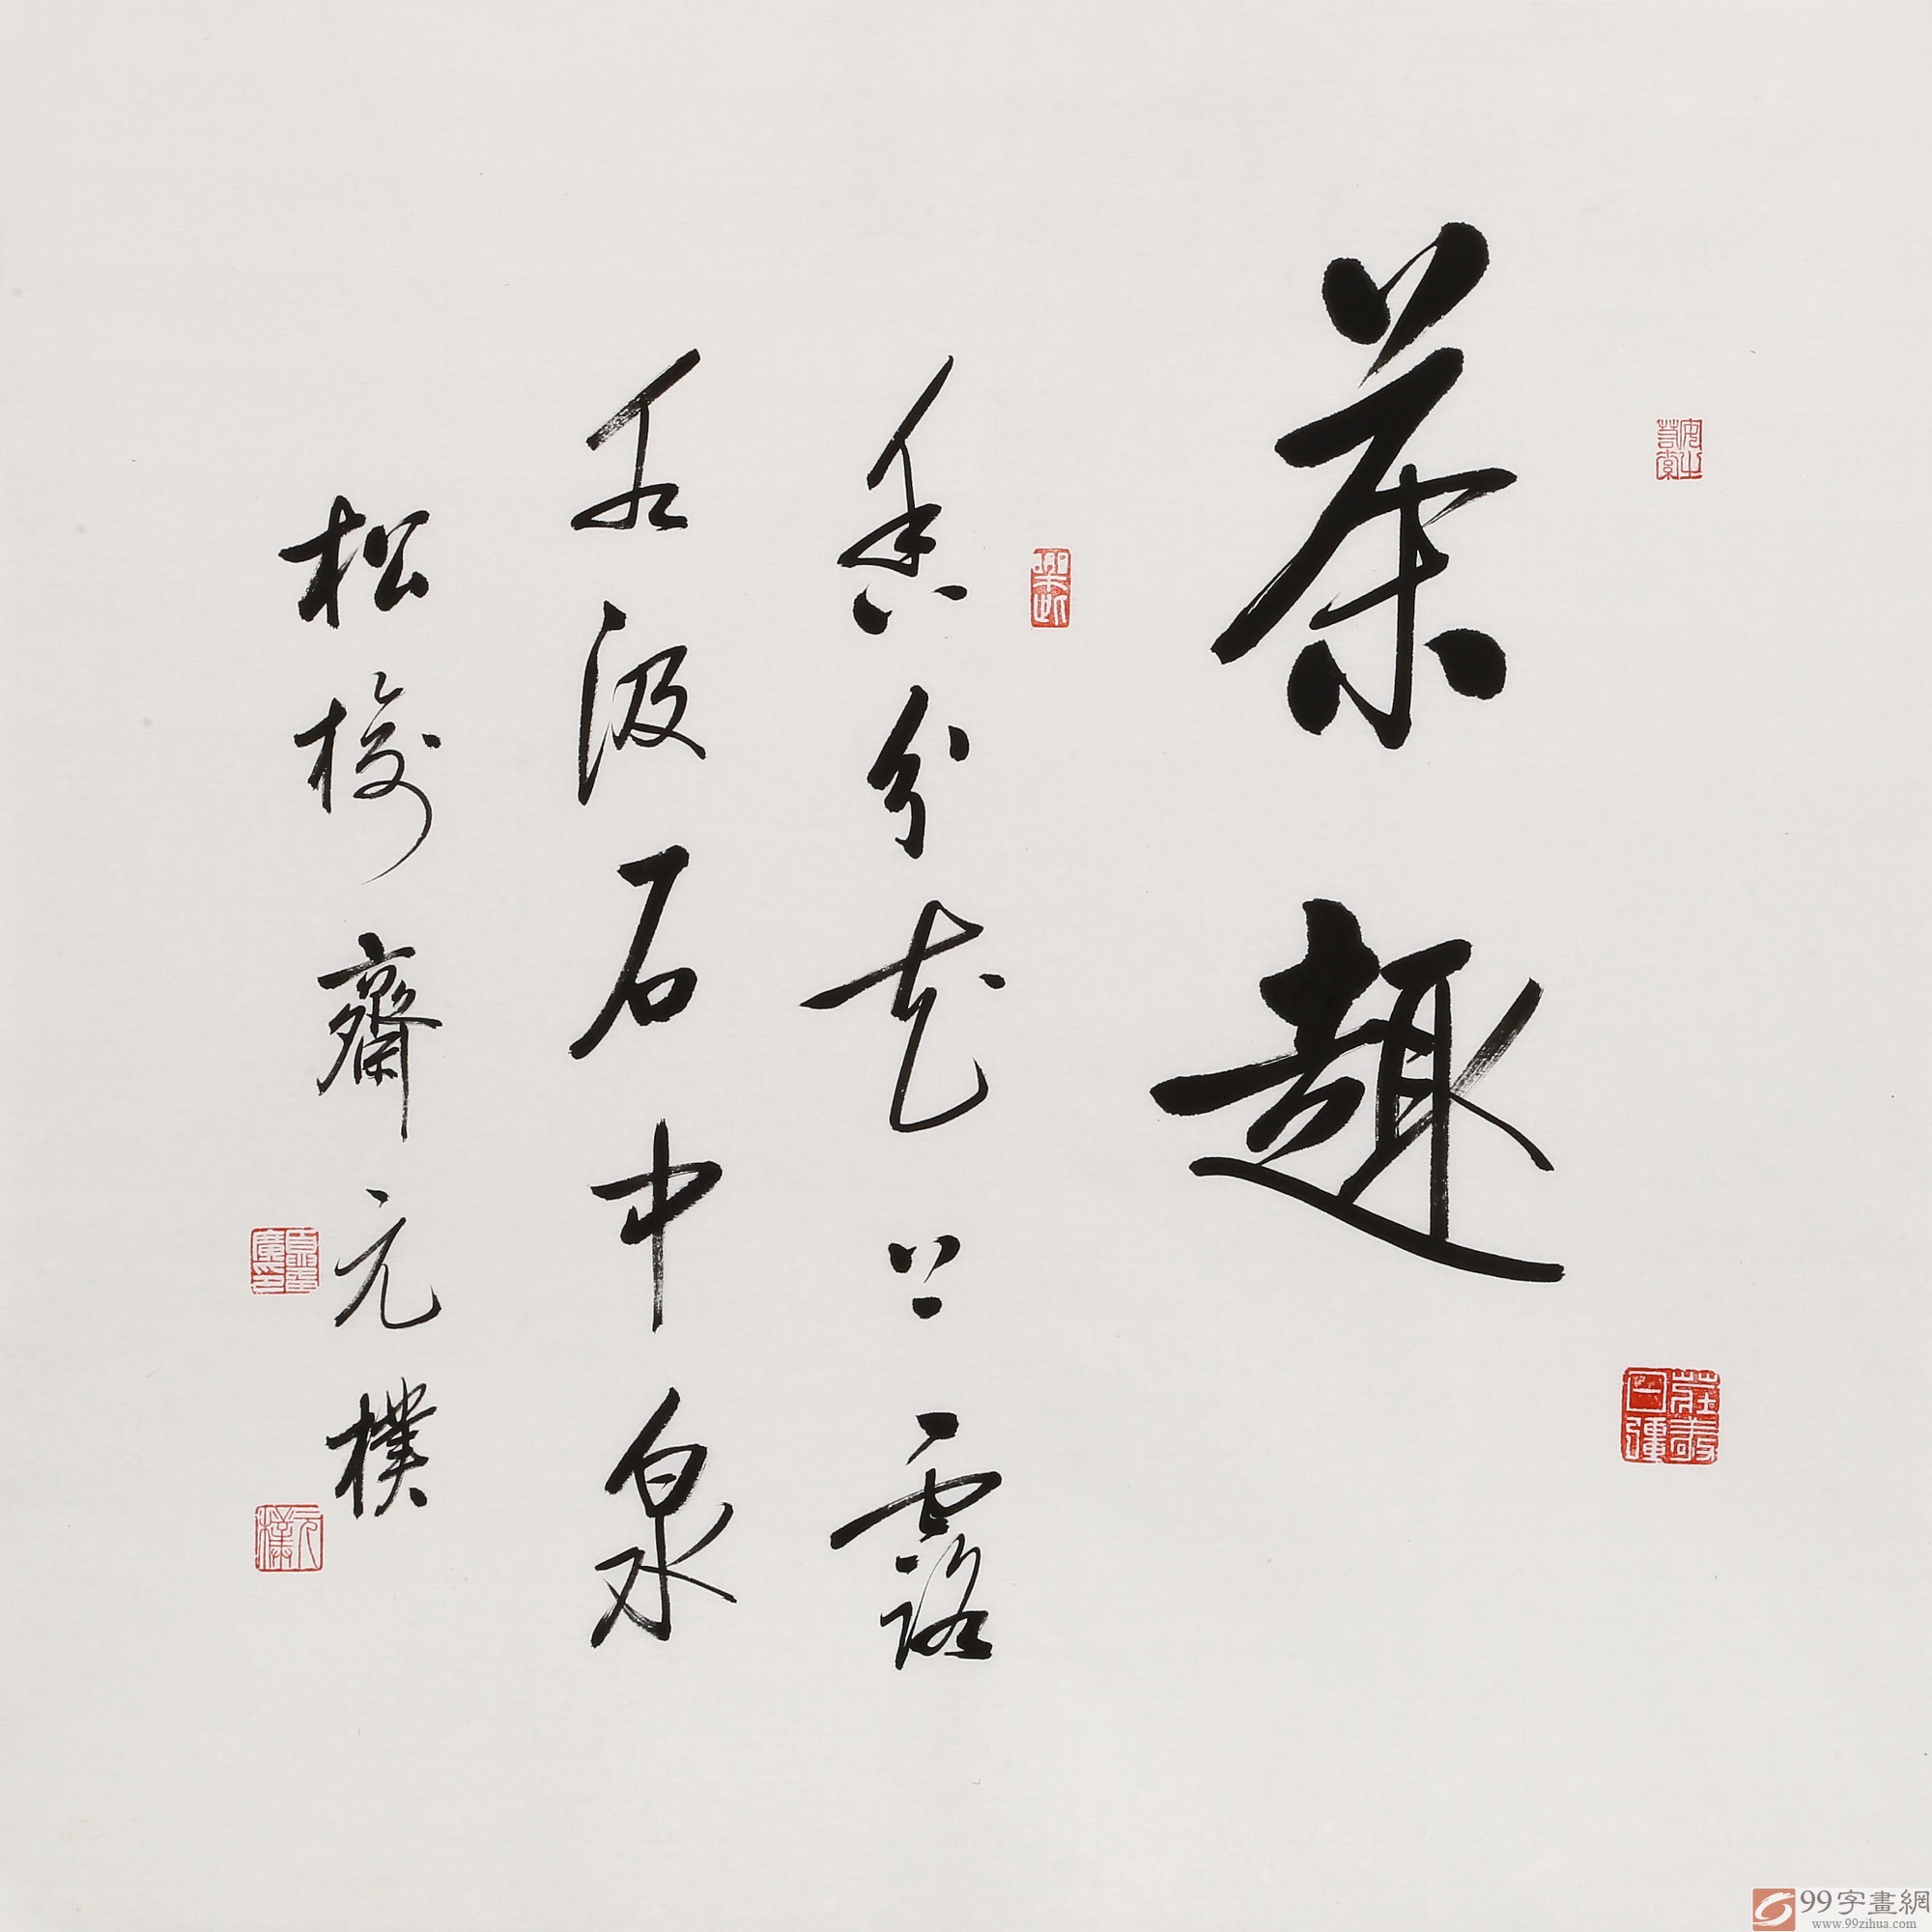 茶趣
香分花上露
水汲石中泉
松梅齋元樸
元樸
99字畫網
www.99zihua.com